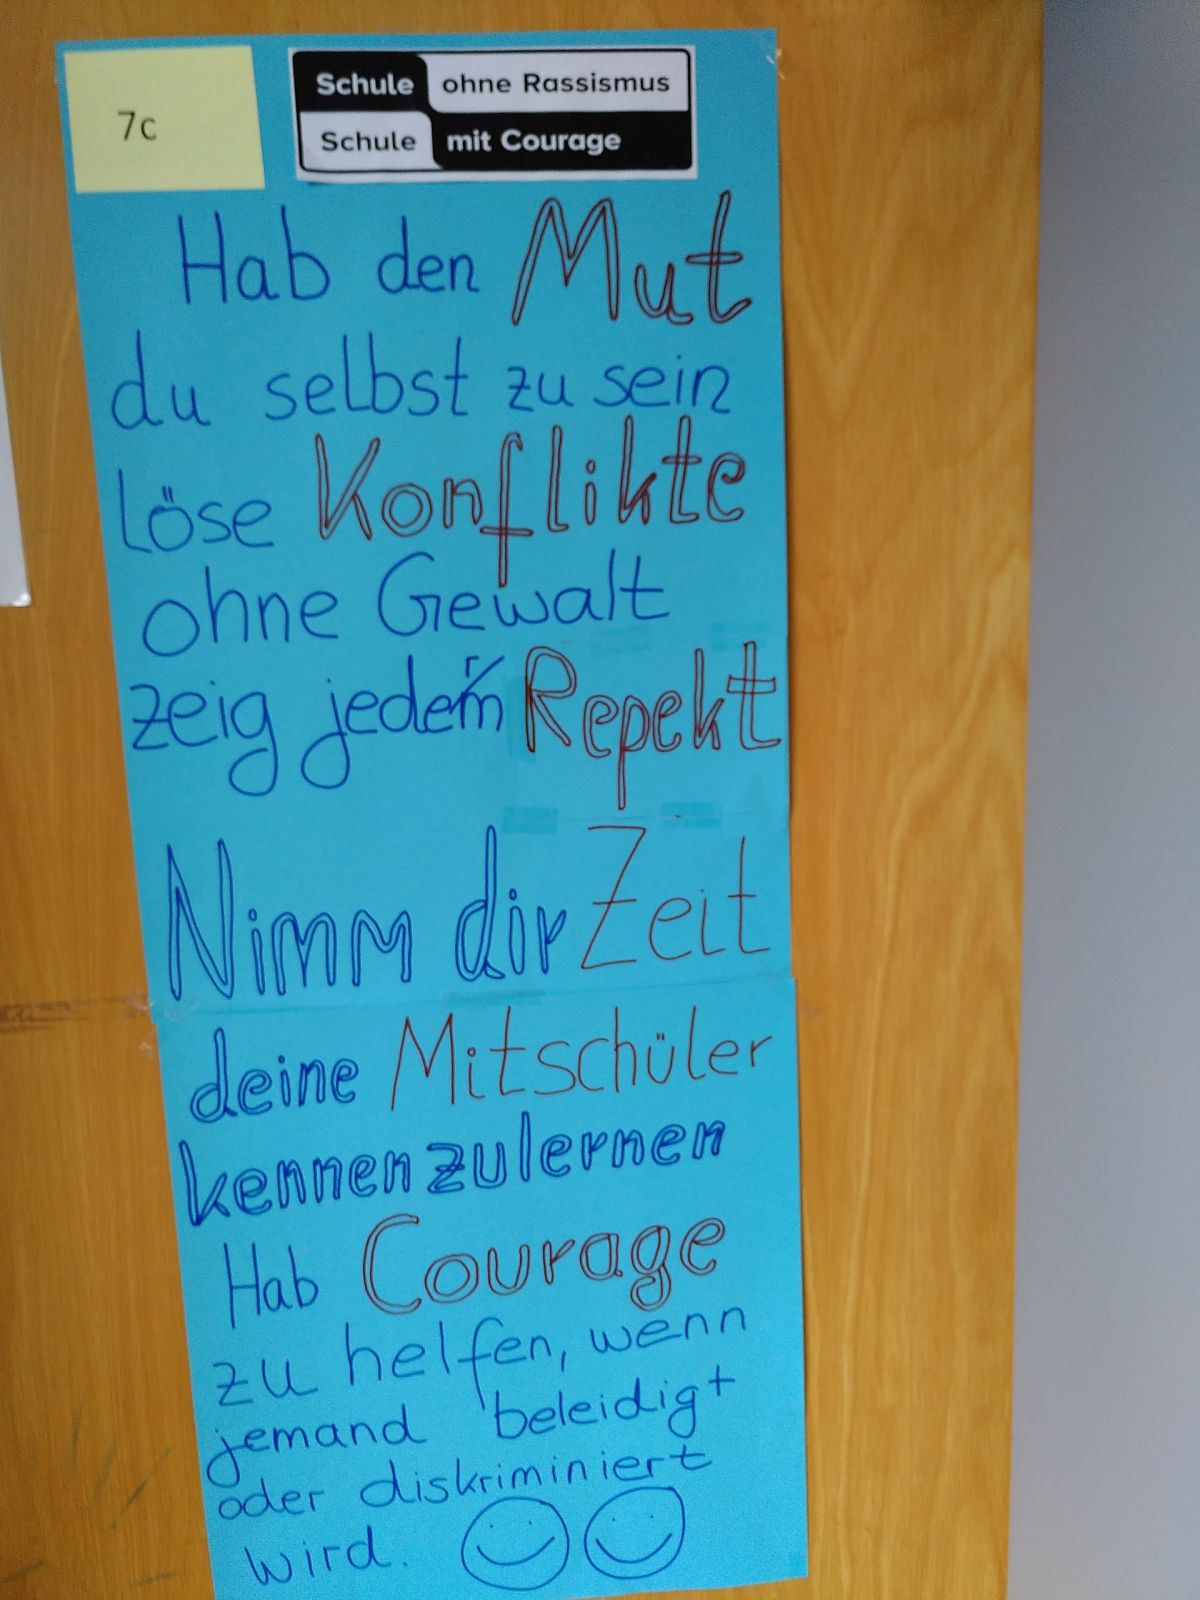 7c
Schule ohne Rassismus
Schule mit Courage
Hab den Mut
du selbst zu sein
löse Konflikte
ohne Gewalt
zeig jedem/r Repekt
Nimm dir Zeit
deine Mitschüler
kennenzulernen
Hab Courage
zu helfen, wenn
jemand beleidigt
oder diskriminiert
wird.